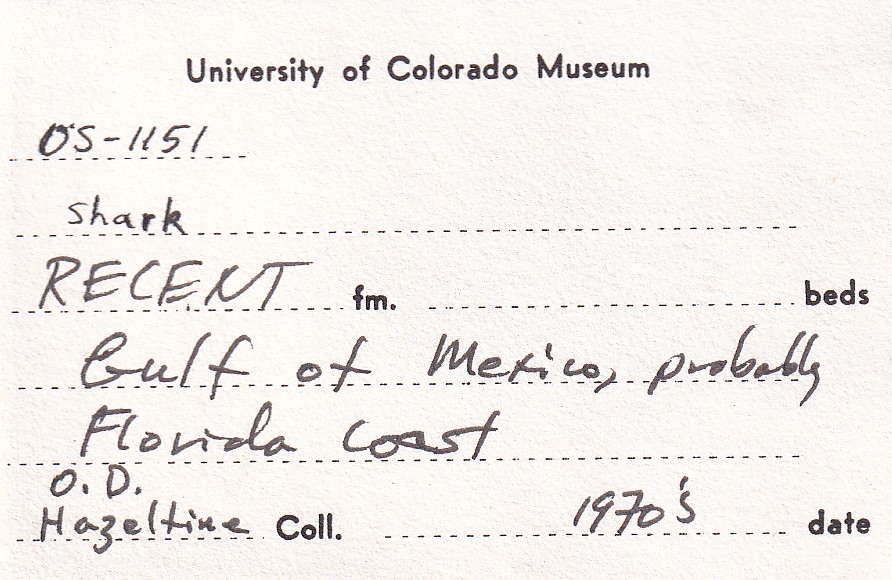 University of Colorado Museum
OS-1151
shark
RECENT fm. beds
Gulf of Mexico, probably
Florida Coast
O.D.
Hazeltine Coll. 1970's date